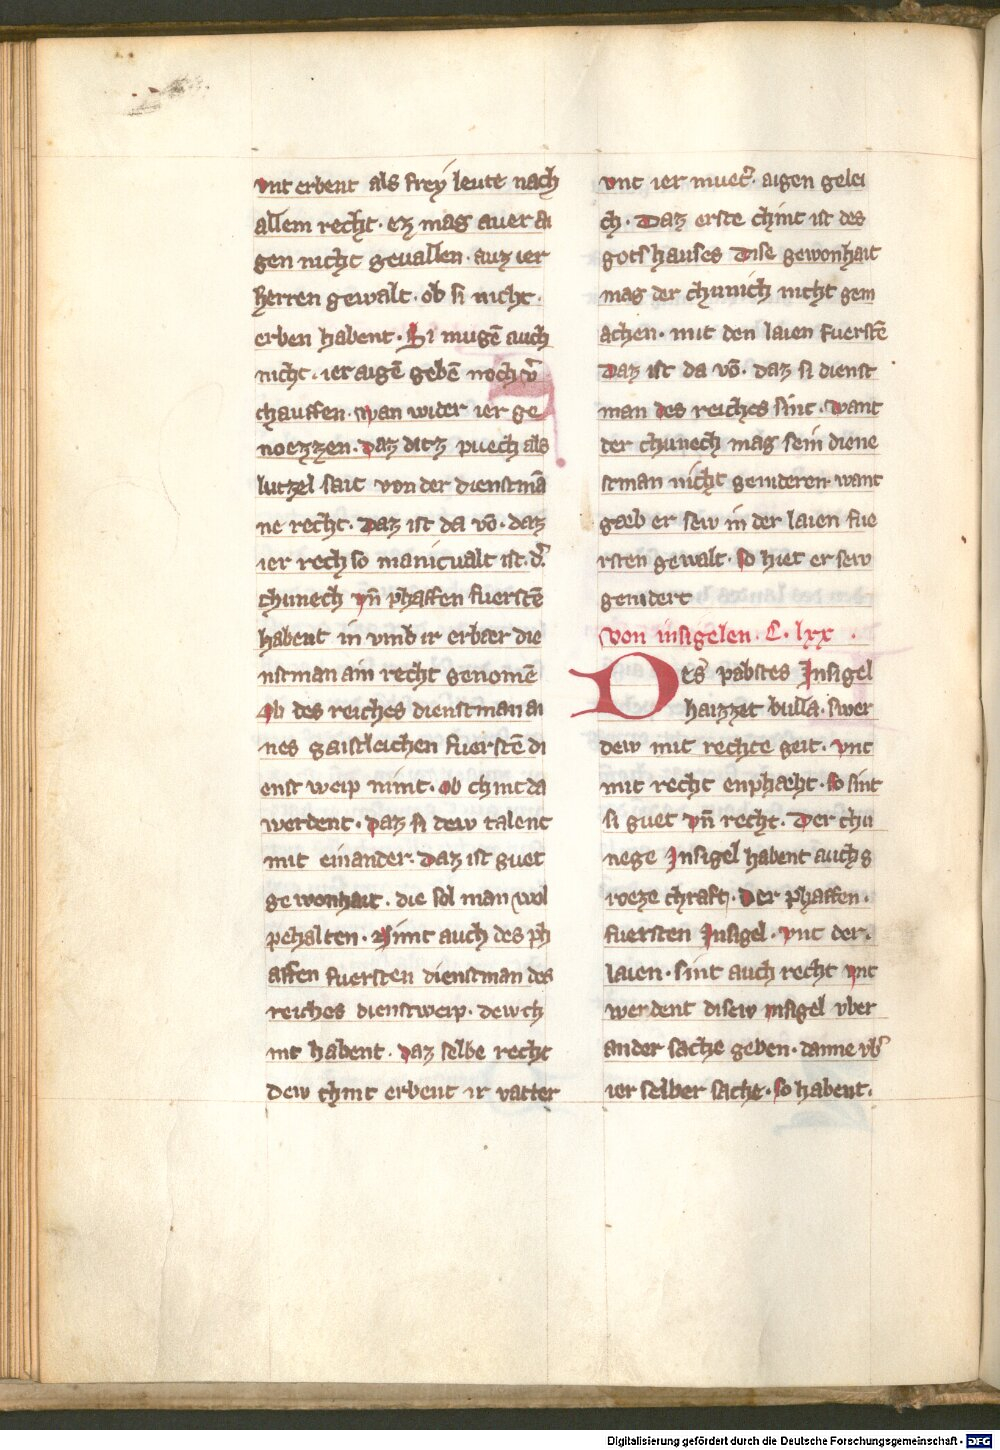 vnt erbent als frey leute nach
allem recht · ez mag auer ai
gen nicht geuallen · auz ier
herren gewalt · ob si nicht ·
erben habent · Si mugē auch
nicht · ier aigē gebē noch v̄
chauffen · wan wider ier ge
noezzen · Daz ditz puech als
lutzel sait von der dienstmā
ne recht · Daz ist da vō · daz
ier rech so manicualt ist · d'
chunech vn̄ phaffen fuerstē
habent in vmb ir erbær die
nstman ain recht genomē
Ob des reiches dienstman ai
nes gaistleichen fuerstē di
enst weip nimt · ob chint da
werdent · daz si dew talent
mit einander · Daz ist guet
gewonhait · die sol man wol
pehalten · Nimt auch des ph
affen fuersten dienstman des
reiches dienstweip · dew ch
int habent · daz selbe recht
dew chint erbent ir vatter
vnt ier muet' · aigen gelei
ch · Daz erste chint ist des
gotshauses Dise gewonhait
mag der chunich nicht gem
achen · mit den laien fuerstē
Daz ist da vō · daz si dienst
man des reiches sint · want
der chunech mag sein diene
stman nicht genideren want
gæb er sew in der laien fue
rsten gewalt · so hiet er sew
genidert
von insigelen · C · lxx ·
Des pabstes Insigel
haizzet bulla · swer
dew mit rechte geit · vnt
mit recht enphæht · so sint
si guet vn̄ recht · Der chu
nege Insigel habent auch g
roeze chraft · Der phaffen ·
fuersten Insigel · vnt der ·
laien · sint auch recht vnt
werdent disew insigel vber
ander sache geben · danne vb'
ier selber sache · so habent ·
Digitalisierung gefördert durch die Deutsche Forschungsgemeinschaft - DFG